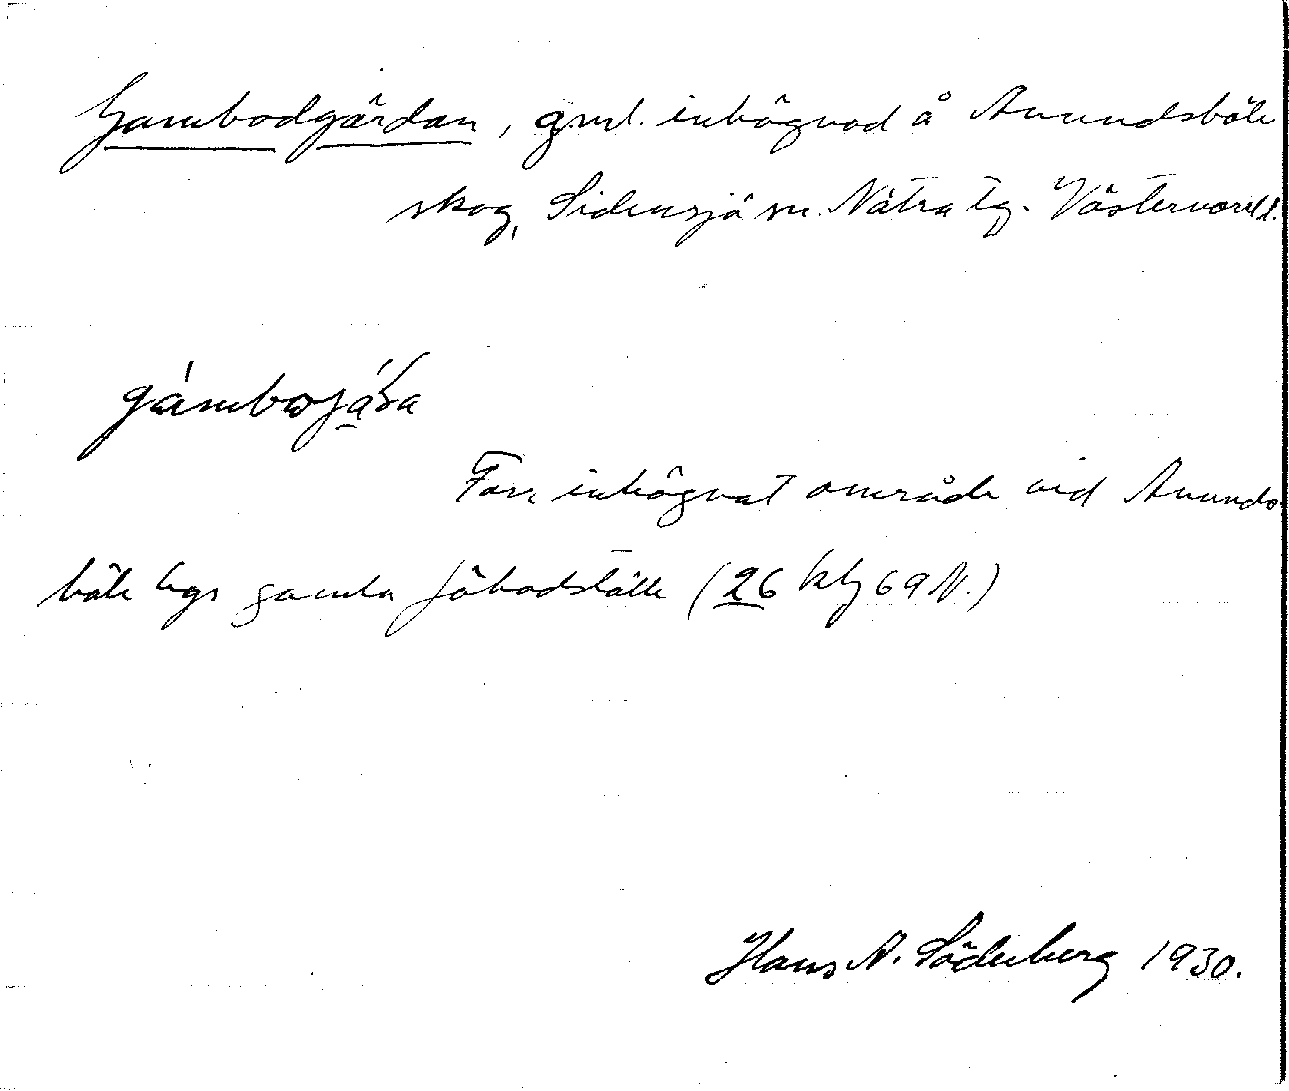 Gambodgärdan, gml. inhägnad å Anundsböle
skog, Sidensjö sn. Nätra tg. Västernorrl.
gàmbojáɽa
Förr inhägnat område vid Anunds-
böle bys gamla fäbodställe (26 kbg 69 N.)
Hans N. Söderberg 1930.